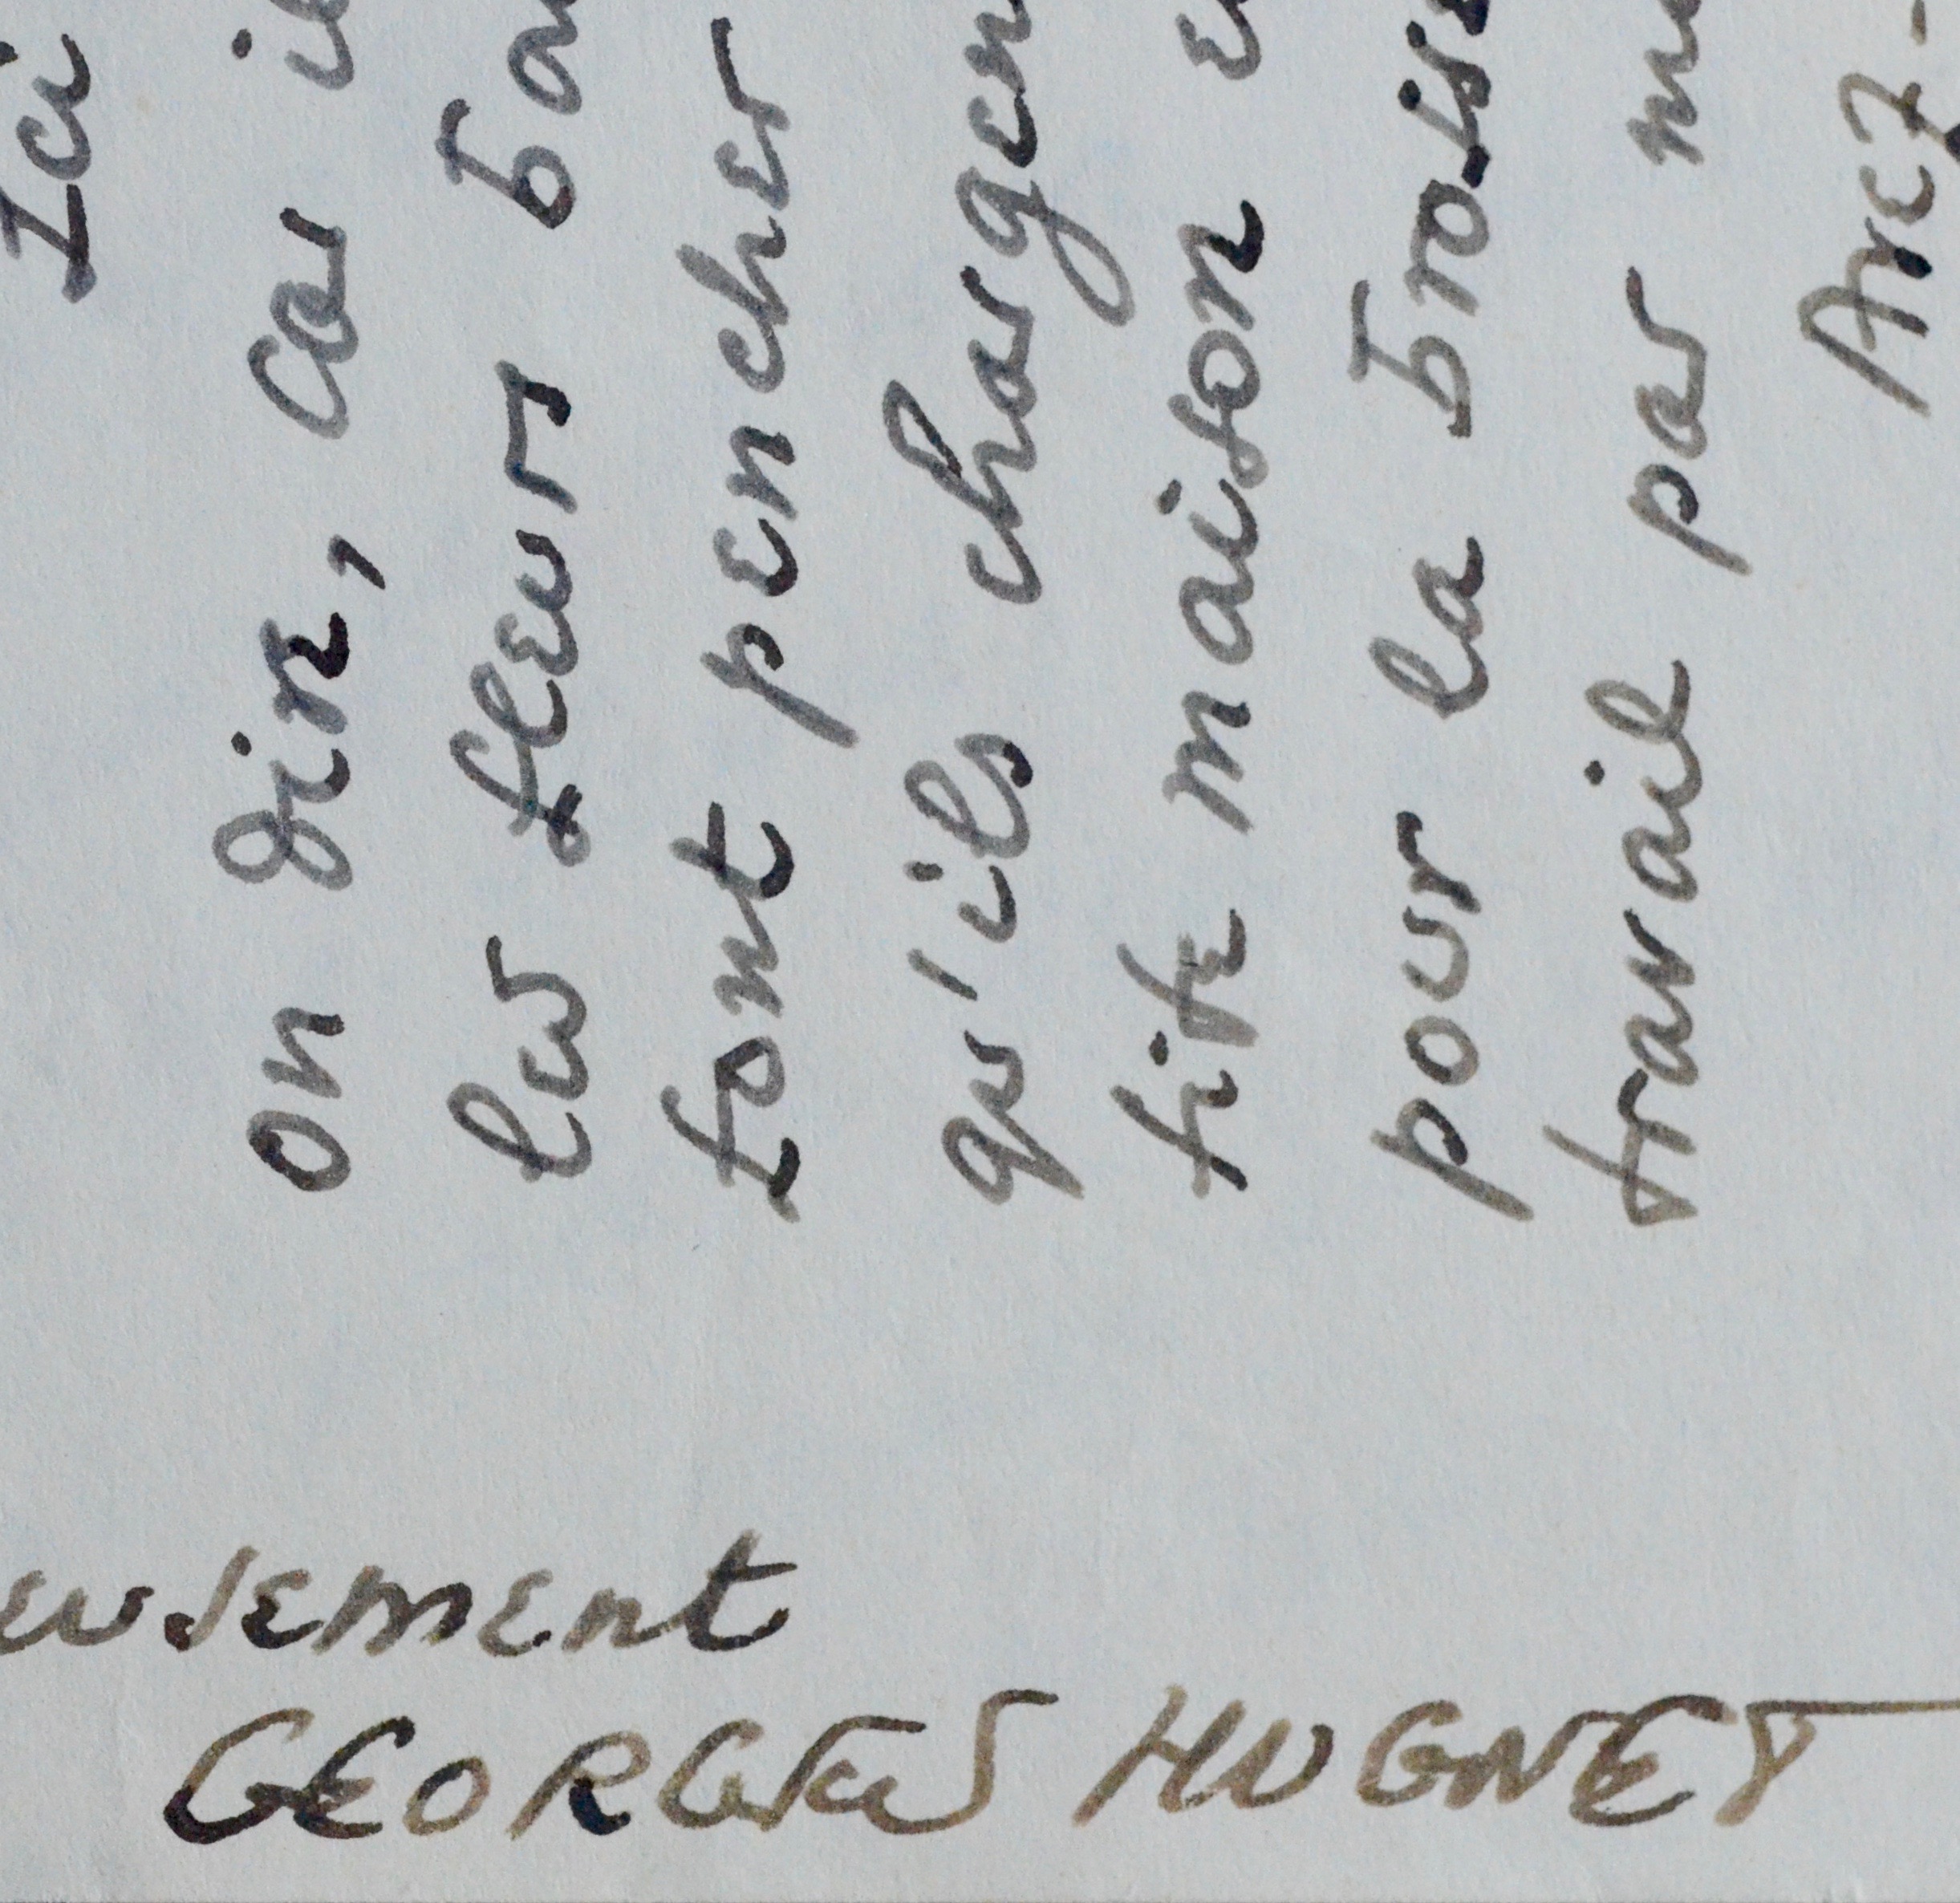 Ici
on dire, car il
les fleurs
font pencher
qu'ils chargen
tite maison e
pour la brous
travail par
Arez-
eusement
GEORGES HUGNET